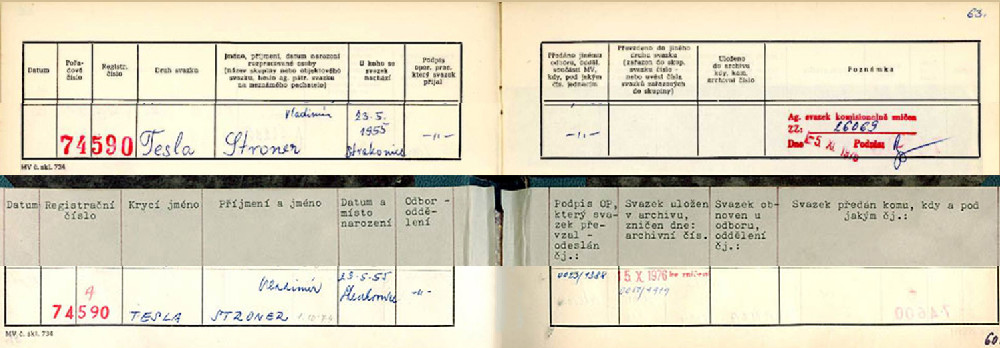 63.
Datum
Pořa-
dové
číslo
Registr.
číslo
Druh svazku
Jméno, příjmení, datum narození
rozpracované osoby
(název skupiny nebo objektového
svazku, heslo ag. pátr. svazku
na neznámého pachatele)
U koho se
svazek
nachází
Podpis
oper. prac.
který svazek
přijal
Předáno jinému
odboru, odděl.
součásti MV,
kdy, pod jakým
čís. jednacím
Převedeno do jiného
druhu svazku
(zařazen do skup.
svazku číslo -
nebo uvést čísla
svazků zařazených
do skupiny)
Uloženo
do archivu
kdy, kam.
archivní číslo
Poznámka
74590
Tesla
Vladimír
Stroner
23.5.
1955
Strakonice
-"-
-"-
Ag. svazek komisionelně zničen
ZZ: 26069
Dne 5. XI. 1976 Podpis:
MV č. skl. 734
Datum
Registrační
číslo
Krycí jméno
Příjmení a jméno
Datum a
místo
narození
Odbor -
oddě-
lení
Podpis OP,
který sva-
zek pře-
vzal -
odeslán
čj.:
Svazek uložen
v archivu,
zničen dne:
archivní čís.
Svazek ob-
noven u
odboru,
oddělení
čj.:
Svazek předán komu, kdy a pod
jakým čj.:
A
74590
TESLA
Vladimír
STRONER
23.5.55
Strakonice
-"-
0053/1388
15. X. 1976 ke zničení
74600
MV č. skl. 734
60.